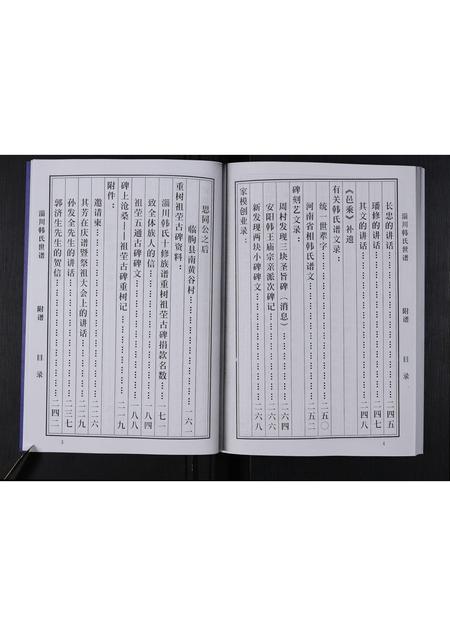 淄川韩氏世谱 附谱 目录
思同公之后
临朐县南黄谷村……一六一
重树祖茔古碑资料：
淄川韩氏十修族谱重树祖茔古碑捐款名数…一七一
致全体族人的信……一八四
祖茔五通古碑碑文……一八八
碑上沧桑——祖茔古碑重树记……二一九
附件：
邀请柬……二二六
其芳在庆谱暨祭祖大会上的讲话……二二九
孙发全先生的讲话……二三七
郭济生先生的贺信……二四二
3
淄川韩氏世谱 附谱 目录
长忠的讲话……二四五
璠修的讲话……二四七
其文的讲话……二四八
《邑乘》补遗
有关韩氏谱文录：
统一世系……二五〇
河南省相韩氏谱文……二五二
碑刻艺文录：
周村发现三块圣旨碑（消息）……二六四
安阳韩王庙宗亲派次碑记……二六六
新发现两块小碑碑文……二六八
家模创业录：
4